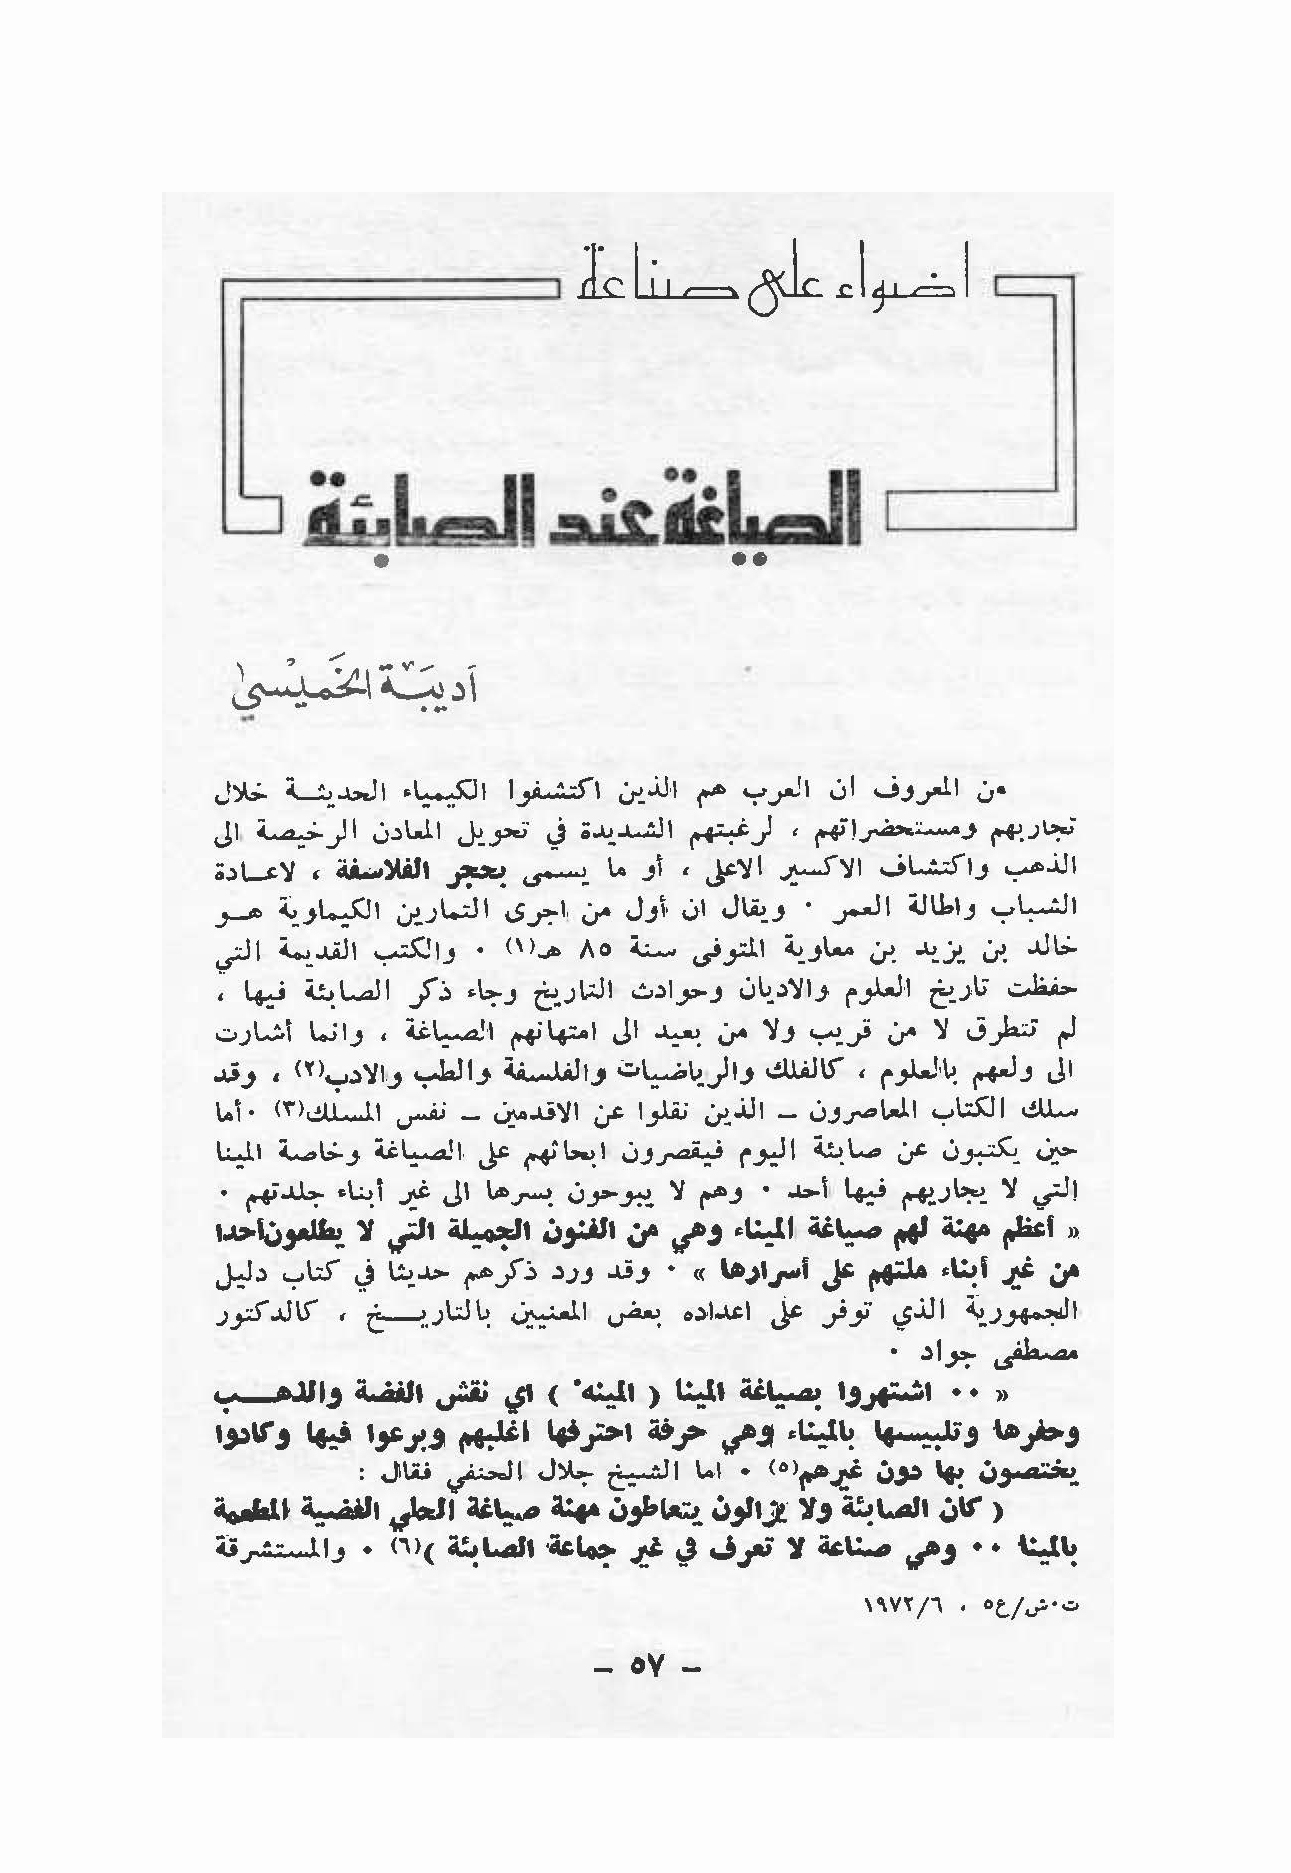 اضواء على صناعة
الصياغة عند الصابئة
أديبة الخميسي
من المعروف ان العرب هم الذين اكتشفوا الكيمياء الحديثـة خلال
تجاربهم ومستحضراتهم ، لرغبتهم الشديدة في تحويل المعادن الرخيصة الى
الذهب واكتشاف الاكسير الاعلى ، أو ما يسمى بحجر الفلاسفة ، لاعـادة
الشباب واطالة العمر ٠ ويقال ان أول من اجرى التمارين الكيماوية هـو
خالد بن يزيد بن معاوية المتوفى سنة ٨٥ هـ(١) ٠ والكتب القديمة التي
حفظت تاريخ العلوم والاديان وحوادث التاريخ وجاء ذكر الصابئة فيها ،
لم تتطرق لا من قريب ولا من بعيد الى امتهانهم الصياغة ، وانما أشارت
الى ولعهم بالعلوم ، كالفلك والرياضيات والفلسفة والطب والادب(٢) ، وقد
سلك الكتاب المعاصرون – الذين نقلوا عن الاقدمين – نفس المسلك(٣) ٠ أما
حين يكتبون عن صابئة اليوم فيقصرون ابحاثهم على الصياغة وخاصة المينا
التي لا يجاريهم فيها أحد ٠ وهم لا يبوحون بسرها الى غير أبناء جلدتهم ٠
« أعظم مهنة لهم صياغة الميناء وهي من الفنون الجميلة التي لا يطلعون أحدا
من غير أبناء ملتهم على أسرارها » ٠ وقد ورد ذكرهم حديثا في كتاب دليل
الجمهورية الذي توفر على اعداده بعض المعنيين بالتاريـــخ ، كالدكتور
مصطفى جواد ٠
« ٠٠ اشتهروا بصياغة المينا ( المينه ) اي نقش الفضة والذهـــب
وحفرها وتلبيسها بالميناء وهي حرفة احترفها اغلبهم وبرعوا فيها وكادوا
يختصون بها دون غيرهم(٥) ٠ اما الشيخ جلال الحنفي فقال :
( كان الصابئة ولا يزالون يتعاطون مهنة صياغة الحلي الفضية المطعمة
بالمينا ٠٠ وهي صناعة لا تعرف في غير جماعة الصابئة )(٦) ٠ والمستشرقة
ت٠ش/ع٥ ، ١٩٧٢/٦
– ٥٧ –